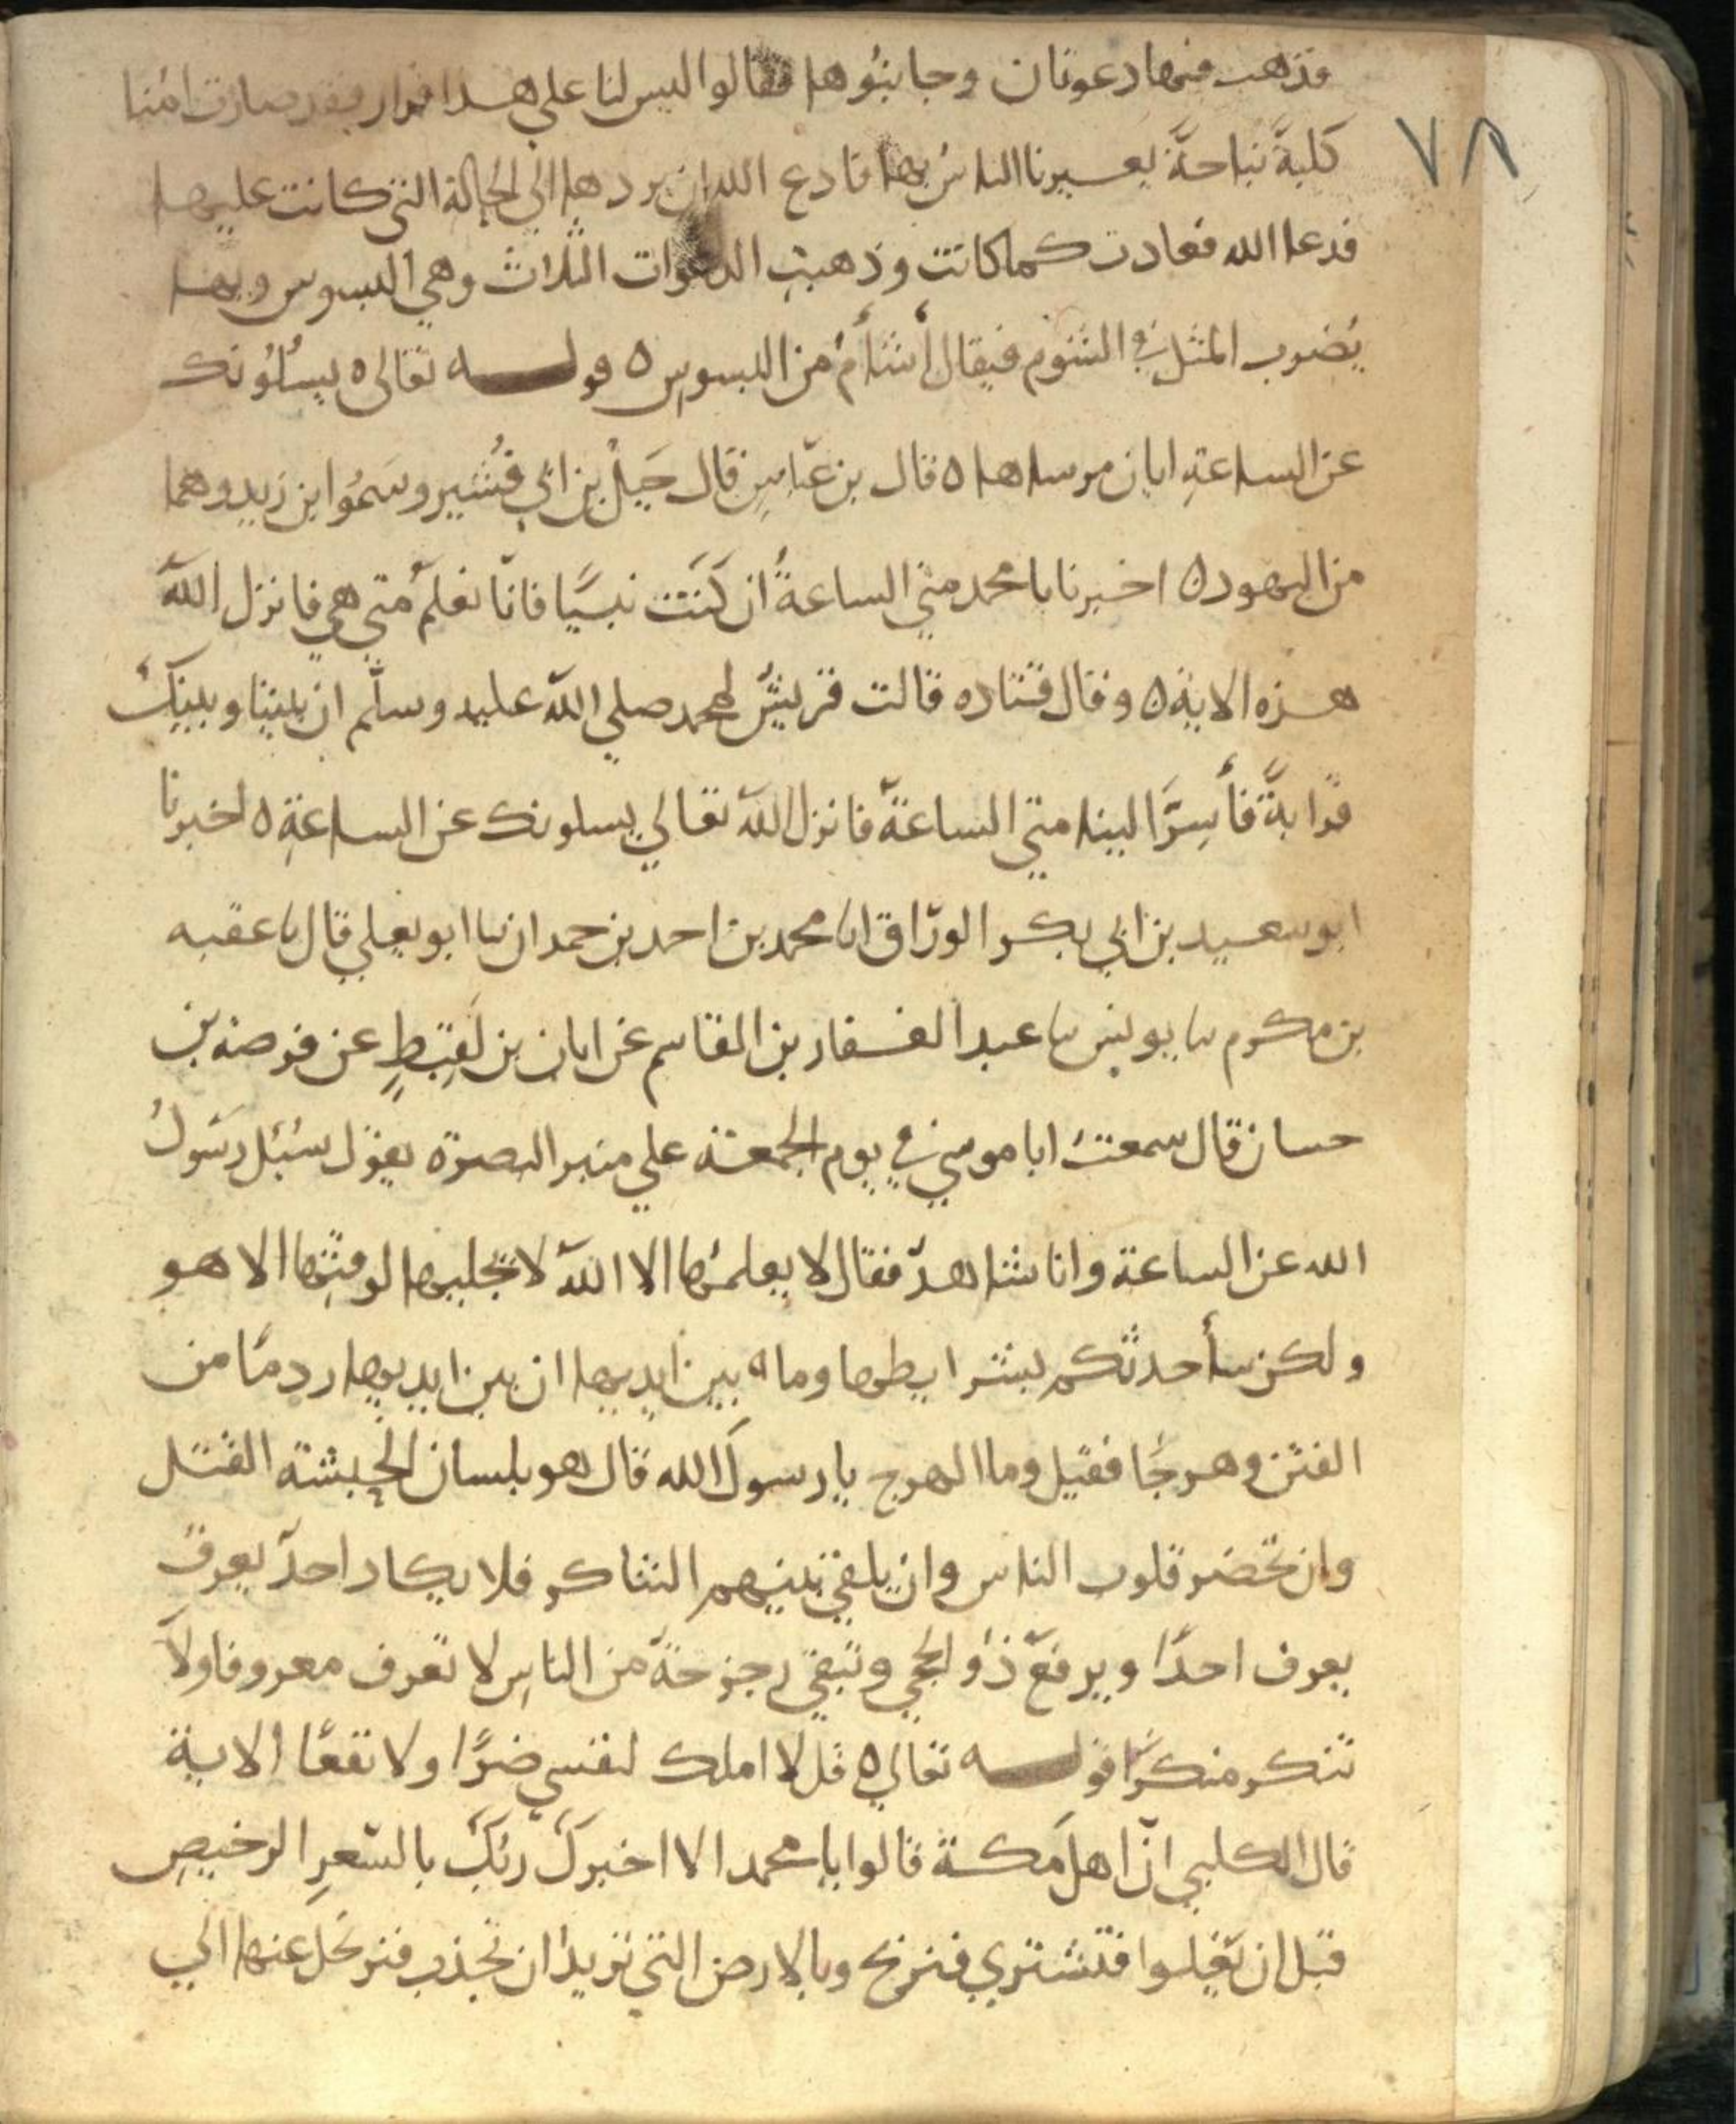 فذهب فيها دعوتان وجا بنوها فقالوا ليس لنا على هذا قرار فقد صارت امنا
٧٨
كلبةً نباحةً يعيرنا الناسُ بها فادع الله ان يردها الي الحالة التي كانت عليها
فدعا الله فعادت كما كانت وذهبت الدعوات الثلاث وهي البسوس وبها
يُضرب المثل في الشوم فيقال أشأمُ من البسوس ٥ قوله تعالى ٥ يسئلونك
عن الساعةِ ايان مرساها ٥ قال بن عباسٍ قال جَبلُ بن ابي قُشير وسموُا بن زيد وهما
من اليهود ٥ اخبرنا يا محمد متي الساعةُ ان كنتَ نبيًا فانّا نعلمُ متي هي فانزل الله
هذه الاية ٥ وقال قتاده قالت قريشٌ لمحمد صلي الله عليه وسلّم ان بيننا وبينكَ
قرابةً فأسِرَّ الينا متي الساعة فانزل الله تعالي يسلونك عن الساعةِ ٥ اخبرنا
ابو سعيد بن ابي بكر الورّاق انا محمد بن احمد بن حمدان ثنا ابو يعلي قال ثنا عقبه
بن مكرم ثنا يونس ثنا عبد الغفار بن القاسم عن ابان بن لَقِيطٍ عن قرصة بن
حسان قال سمعتُ ابا موسي في يوم الجمعة علي منبر البصرة يقول سُئِل رسولُ
الله عن الساعة وانا شاهدٌ فقال لا يعلمُها الا الله لا يجليها لوقتِها الا هو
ولكن سأحدثكم بشرايطها وما ٥ بين ايديها ان بين ايديها ردمًا من
الفتن وهرجًا فقيل وما الهرج يا رسولَ الله قال هو بلسان الحبشة القتل
وان تحضر قلوب الناس وان يلقي بينهم التناكر فلا يكاد احدٌ يعرف
يعرف احدًا ويرفعَ ذوُ الحجي وتبقي رجزحة من الناسِ لا تعرف معروفا ولا
تنكر منكرًا قوله تعالي ٥ قل لا املك لنفسي ضرًّا ولا نفعًا الاية
قال الكلبي انّ اهل مكة قالوا يا محمد الا اخبرك ربُكَ بالسّعرِ الرخيصِ
قبل ان يغلوا فتشتري فتربح وبالارض التي تزيد ان تجذب فترتحل عنها الي